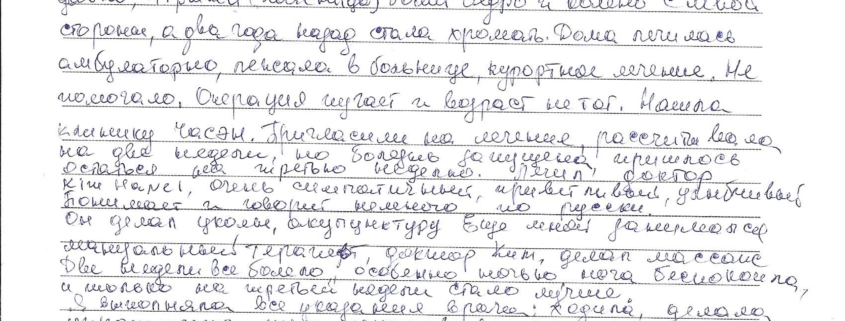 бедро и колено с левой
стороны, а два года назад стала хромать. Дома лечилась
амбулаторно, лежала в больнице, курортное лечение. Не
помогало. Операция пугает и возраст не тот. Нашла
клинику Часэн. Пригласили на лечение, рассчитывала
на две недели, но болезнь запущена, пришлось
остаться на третью неделю. Лечил доктор
очень симпатичный, приветливый, улыбчивый
Понимает и говорит немного по русски.
Он делал уколы, акупунктуру Еще мной занимался
мануальный терапевт, доктор Ким, делал массаж
Две недели все болело, особенно ночью нога беспокоила,
и только на третьей недели стало лучше.
Я выполняла все указания врача: ходила, делала